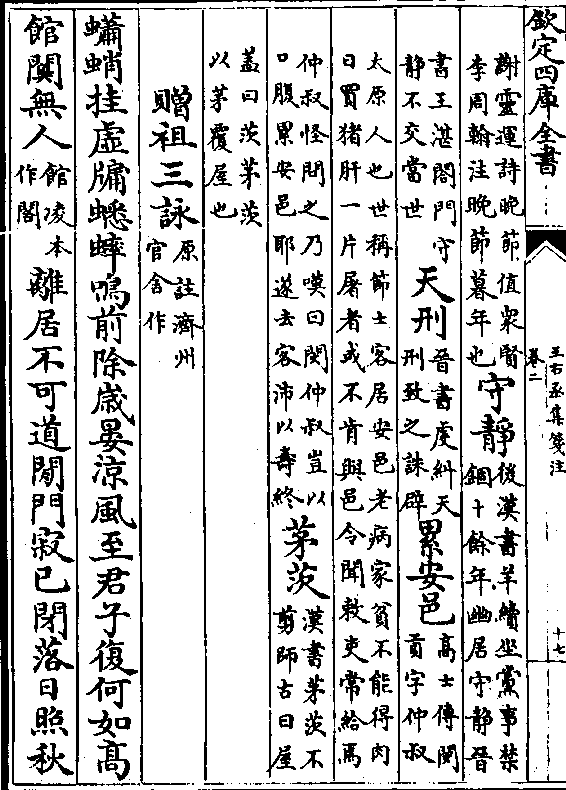 欽定四庫全書
王右丞集箋注
卷二
十七
謝靈運詩晚節值衆賢
李周翰注晚節暮年也
守靜
後漢書羊續坐黨事禁
錮十餘年幽居守静晉
書王湛閤門守
静不交當世
天刑
晉書虔糾天
刑致之誅辟
累安邑
高士傳閔
貢字仲叔
太原人也世稱節士客居安邑老病家貧不能得肉
日買猪肝一片屠者或不肯與邑令聞敕吏常給焉
仲叔怪問之乃嘆曰閔仲叔豈以
口腹累安邑耶遂去客沛以壽終
茅茨
漢書茅茨不
剪師古曰屋
蓋曰茨茅茨
以茅覆屋也
贈祖三詠
原註濟州
官舍作
蠨蛸挂虛牖蟋蟀鳴前除歲晏涼風至君子復何如高
館闃無人
館凌本
作閣
離居不可道閒門寂已閉落日照秋